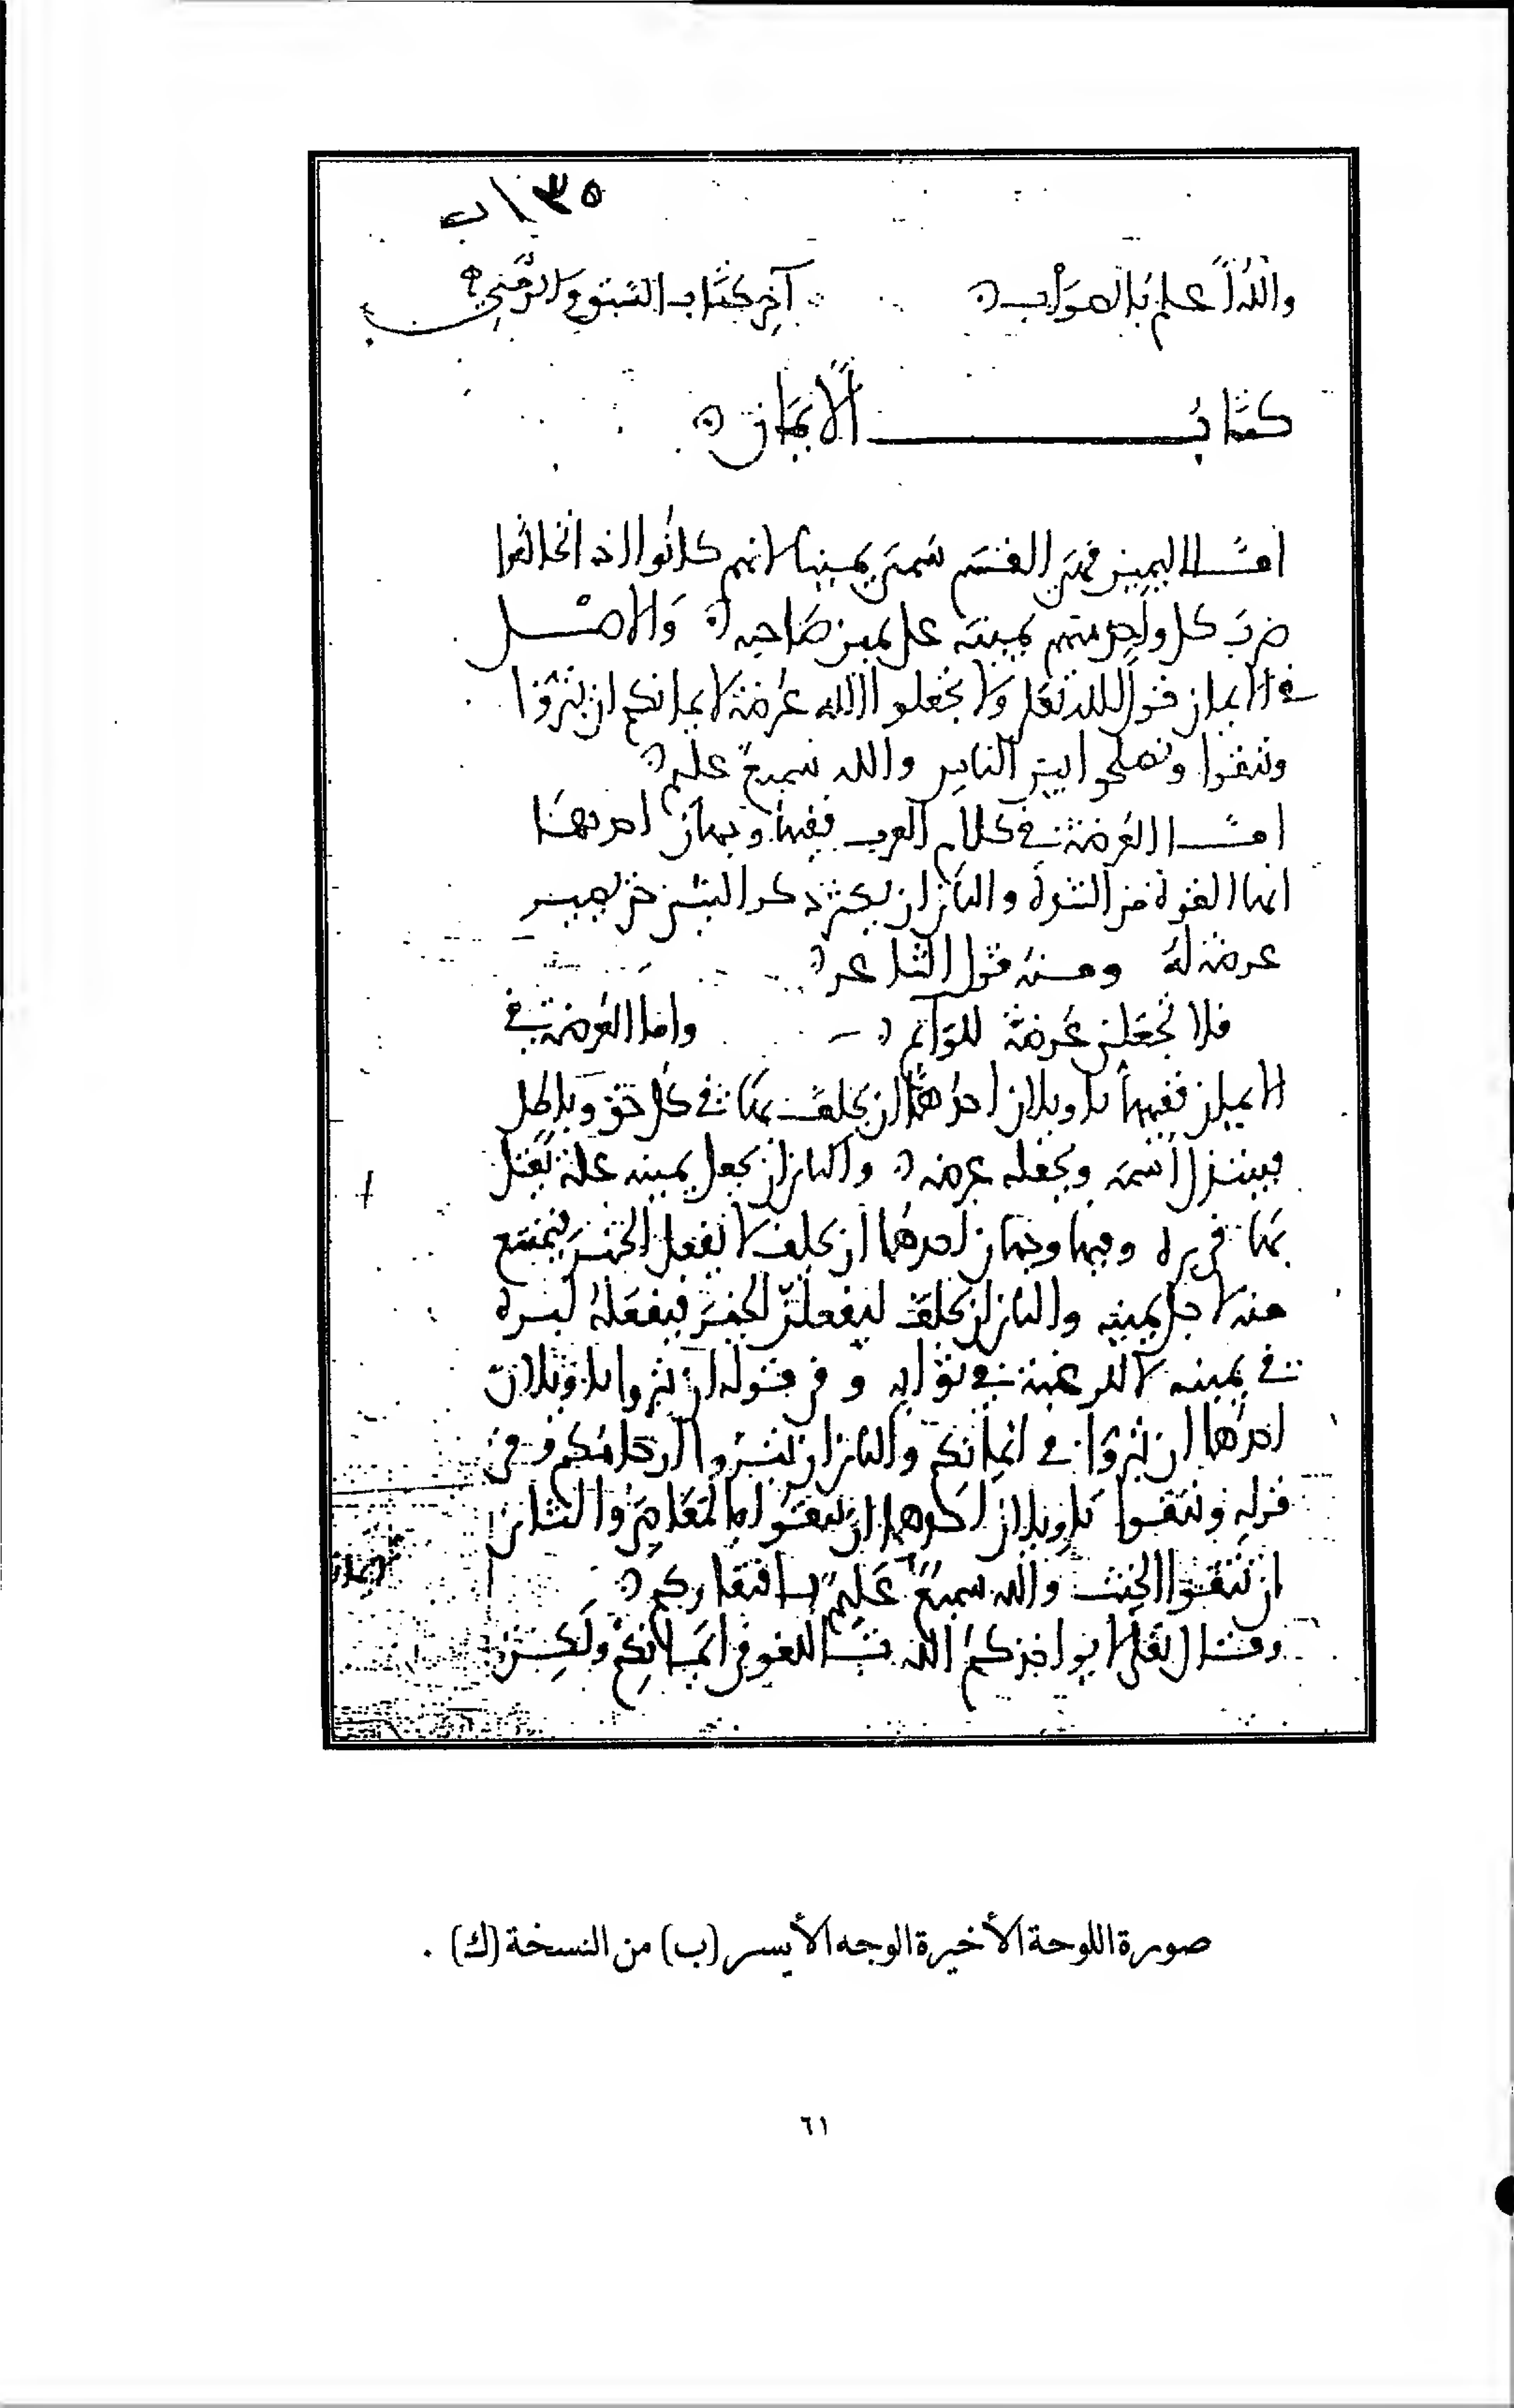 ٣٥\ب
والله أعلم بالصواب آخر كتاب السبق والرمي
كتاب الأيمان
امّا اليمين فهي القسم سمي يمينا لانهم كانوا اذا تحالفوا
ضرب كل واحد منهم يمينه على يمين صاحبه والاصل
في الايمان قول الله تعلى ولا تجعلوا الله عرضة لايمانكم ان تبروا
وتتقوا وتصلحوا بين الناس والله سميع عليم
امّا العرضة في كلام العرب ففيها وجهان احدهما
انها القوة من الشدة والثاني ان يكثر ذكر الشيء حتى يصير
عرضة له ومنه قول الشاعر
فلا تجعلني عرضة للوائم واما العرضة في
الايمان ففيها تاويلان احدهما ان يحلف بها في كل حق وباطل
فيبتذل اسمه ويجعله عرضة والثاني ان يجعل يمينه علة يعتل
بها في بره وفيها وجهان احدهما ان يحلف لا يفعل الخير فيمتنع
منه لاجل يمينه والثاني ان يحلف ليفعلن الخير فيفعله لبره
في يمينه لا للرغبة في ثوابه وفي قوله ان تبروا تاويلان
احدهما ان تبروا في ايمانكم والثاني ان تبروا ارحامكم وفي
قوله وتتقوا تاويلان احدهما ان تتقوا المعاصي والثاني
ان تتقوا الحنث والله سميع عليم باعتقادكم
وقال تعلى لا يواخذكم الله باللغو في ايمانكم ولكن
صورة اللوحة الأخيرة الوجه الأيسر (ب) من النسخة (ك) .
٦١